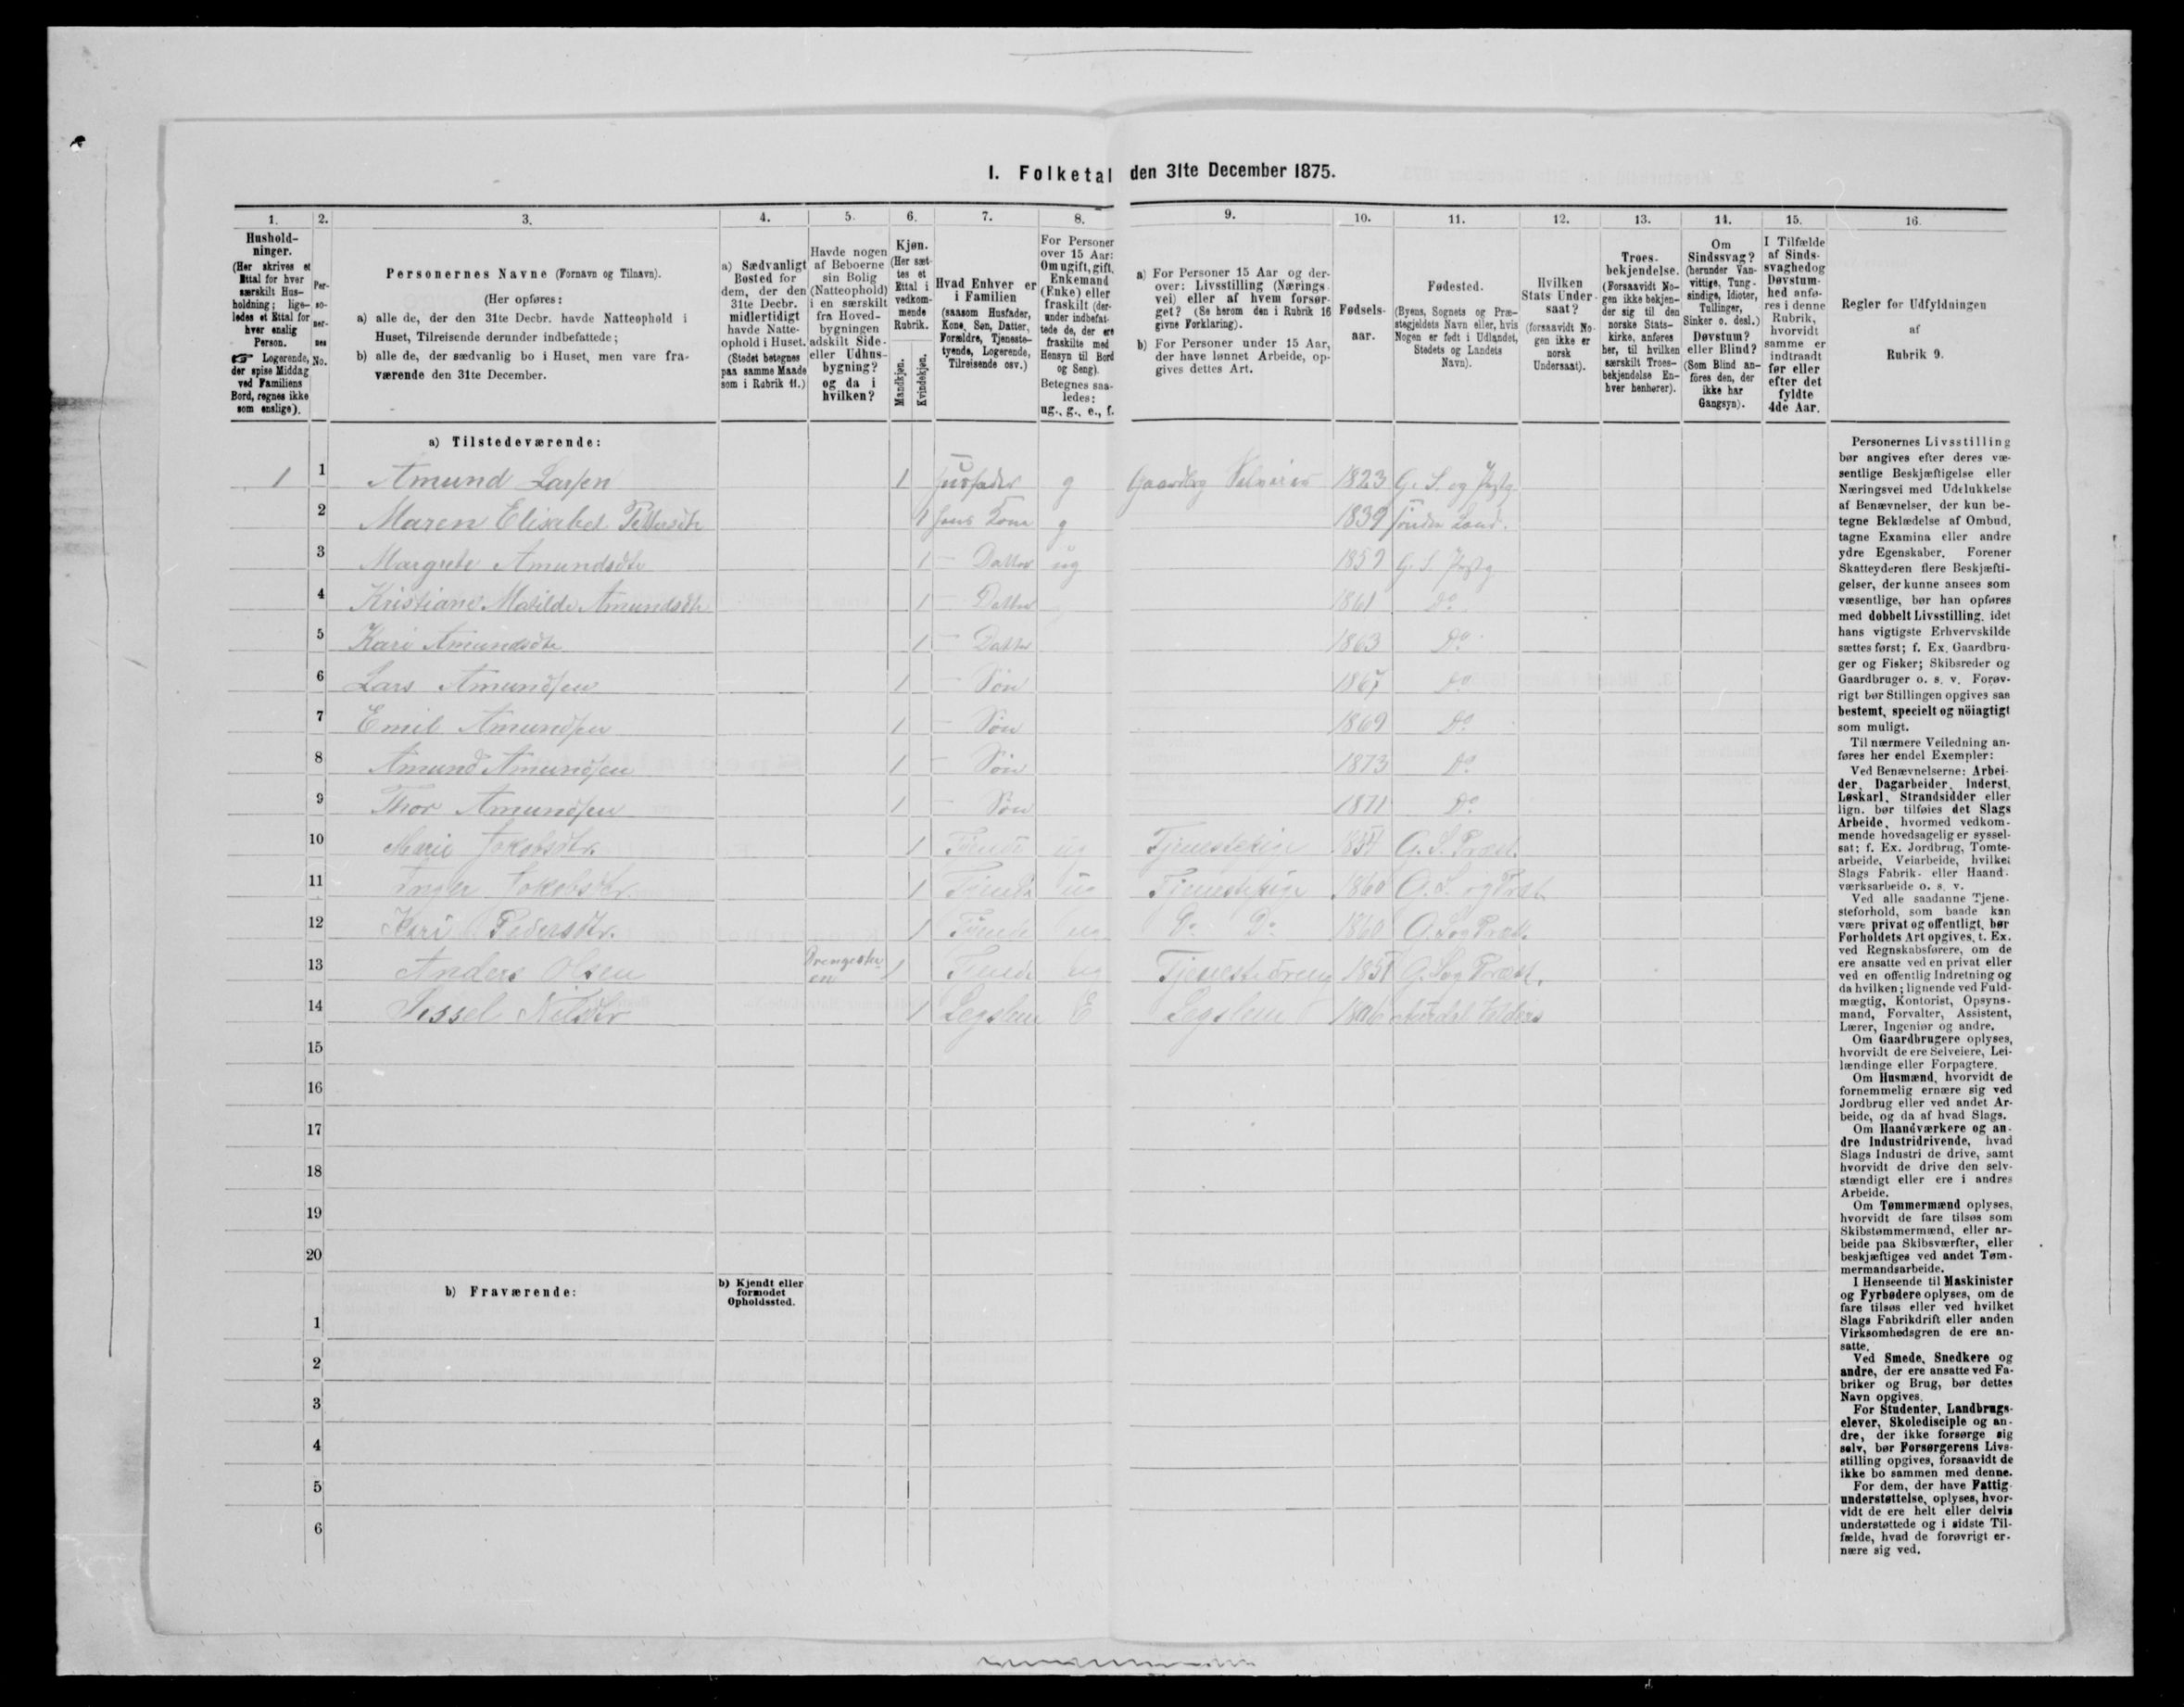 I. Folketal den 31te December 1875.
1. 2. 3. 4. 5. 6. 7. 8. 9. 10. 11. 12. 13. 14. 15. 16.
Hushold-
ninger.
(Her skrives et
Ettal for hver
særskilt Hus-
holdning; lige-
ledes et Ettal for
hver enslig
Person.
☞ Logerende,
der spise Middag
ved Familiens
Bord, regnes ikke
som enslige).
Per-
so-
ner-
nes
No.
Personernes Navne (Fornavn og Tilnavn).
(Her opføres:
a) alle de, der den 31te Decbr. havde Natteophold i
Huset, Tilreisende derunder indbefattede;
b) alle de, der sædvanlig bo i Huset, men vare fra-
værende den 31te December.
a) Sædvanligt
Bosted for
dem, der den
31te Decbr.
midlertidigt
havde Natte-
ophold i Huset.
(Stedet betegnes
paa samme Maade
som i Rubrik 11.)
Havde nogen
af Beboerne
sin Bolig
(Natteophold)
i en særskilt
fra Hoved-
bygningen
adskilt Side-
eller Udhus-
bygning?
og da i
hvilken?
Kjøn.
(Her sæt-
tes et
Ettal i
vedkom-
mende
Rubrik.
Mandkjøn.
Kvindekjøn.
Hvad Enhver er
i Familien
(saasom Husfader,
Kone, Søn, Datter,
Forældre, Tjeneste-
tyende, Logerende,
Tilreisende osv.)
For Personer
over 15 Aar:
Om ugift, gift,
Enkemand
(Enke) eller
fraskilt (der-
under indbefat-
tede de, der ere
fraskilte med
Hensyn til Bord
og Seng).
Betegnes saa-
ledes:
ug., g., e., f.
a) For Personer 15 Aar og der-
over: Livsstilling (Nærings
vei) eller af hvem forsør-
get? (Se herom den i Rubrik 16
givne Forklaring).
b) For Personer under 15 Aar,
der have lønnet Arbeide, op-
gives dettes Art.
Fødsels-
aar.
Fødested.
(Byens, Sognets og Præ-
stegjeldets Navn eller, hvis
Nogen er født i Udlandet,
Stedets og Landets
Navn).
Hvilken
Stats Under-
saat?
(forsaavidt No-
gen ikke er
norsk
Undersaat).
Troes-
bekjendelse.
(Forsaavidt No-
gen ikke bekjen-
der sig til den
norske Stats-
kirke, anføres
her, til hvilken
særskilt Troes-
bekjendelse En-
hver henhører).
Om
Sindssvag?
(herunder Van-
vittige, Tung-
sindige, Idioter,
Tullinger,
Sinker o. desl.)
Døvstum?
eller Blind?
(Som Blind an-
føres den, der
ikke har
Gangsyn).
I Tilfælde
af Sinds-
svaghed og
Døvstum-
hed anfø-
res i denne
Rubrik,
hvorvidt
samme er
indtraadt
før eller
efter det
fyldte
4de Aar.
Regler for Udfyldningen
af
Rubrik 9.
a) Tilstedeværende:
1 1 Amund Larsen 1 Husfader g Gaardbr Selveier 1823 G. S. og Prstg
2 Maren Elisabet 1 hans Kone g 1839 Søndre Land.
3 Margrete Amundsdtr 1 — Datter ug 1859 G. S. Prstg
4 Kristiane Matilde Amundsdtr 1 — Datter 1861 Do
5 Kari Amundsdtr 1 — Datter 1863 Do
6 Lars Amundsen 1 — Søn 1867 Do
7 Emil Amundsen 1 — Søn 1869 Do
8 Amund Amundsen 1 — Søn 1873 Do
9 Thor Amundsen 1 — Søn 1871 Do
10 Marie Jakobsdtr. 1 Tjende ug Tjenestepige G. S. Præst.
11 Inger Jakobsdtr. 1 Tjende ug Tjenestepige 1860 G. S. og Præst
12 Kari Pedersdtr. 1 Tjende ug Do Do 1860 G. S og Præst.
13 Anders Olsen Drengestu
en 1 Tjende ug Tjenestedreng G. S og Præst.
14 Sissel Nilsdtr 1 Legslem E Legslem 1806 Aurdal Valders
15
16
17
18
19
20
b) Fraværende:
b) Kjendt eller
formodet
Opholdssted.
1
2
3
4
5
6
Personernes Livsstilling
bør angives efter deres væ-
sentlige Beskjæftigelse eller
Næringsvei med Udelukkelse
af Benævnelser, der kun be-
tegne Beklædelse af Ombud,
tagne Examina eller andre
ydre Egenskaber. Forener
Skatteyderen flere Beskjæfti-
gelser, der kunne ansees som
væsentlige, bør han opføres
med dobbelt Livsstilling, idet
hans vigtigste Erhvervskilde
sættes først; f. Ex. Gaardbru-
ger og Fisker; Skibsreder og
Gaardbruger o. s. v. Forøv-
rigt bør Stillingen opgives saa
bestemt, specielt og nöiagtigt
som muligt.
Til nærmere Veiledning an-
føres her endel Exempler:
Ved Benævnelserne: Arbei-
der, Dagarbeider, Inderst,
Løskarl, Strandsidder eller
lign. bør tilføies det Slags
Arbeide, hvormed vedkom-
mende hovedsagelig er syssel-
sat; f. Ex. Jordbrug, Tomte-
arbeide, Veiarbeide, hvilket
Slags Fabrik- eller Haand-
værksarbeide o. s. v.
Ved alle saadanne Tjene-
steforhold, som baade kan
være privat og offentligt, bør
Forholdets Art opgives, t. Ex.
ved Regnskabsførere, om de
ere ansatte ved en privat eller
ved en offentlig Indretning og
da hvilken; lignende ved Fuld-
mægtig, Kontorist, Opsyns-
mand, Forvalter, Assistent,
Lærer, Ingeniør og andre.
Om Gaardbrugere oplyses,
hvorvidt de ere Selveiere, Lei-
lændinge eller Forpagtere.
Om Husmænd, hvorvidt de
fornemmelig ernære sig ved
Jordbrug eller ved andet Ar-
beide, og da af hvad Slags.
Om Haandværkere og an-
dre Industridrivende, hvad
Slags Industri de drive, samt
hvorvidt de drive den selv-
stændigt eller ere i andres
Arbeide.
Om Tømmermænd oplyses,
hvorvidt de fare tilsøs som
Skibstømmermænd, eller ar-
beide paa Skibsværfter, eller
beskjæftiges ved andet Tøm-
mermandsarbeide.
I Henseende til Maskinister
og Fyrbødere oplyses, om de
fare tilsøs eller ved hvilket
Slags Fabrikdrift eller anden
Virksomhedsgren de ere an-
satte.
Ved Smede, Snedkere og
andre, der ere ansatte ved Fa-
briker og Brug, bør dettes
Navn opgives.
For Studenter, Landbrugs-
elever, Skoledisciple og an-
dre, der ikke forsørge sig
selv, bør Forsørgerens Livs-
stilling opgives, forsaavidt de
ikke bo sammen med denne.
For dem, der have Fattig-
understøttelse, oplyses, hvor-
vidt de ere helt eller delvis
understøttede og i sidste Til-
fælde, hvad de forøvrigt er-
nære sig ved.